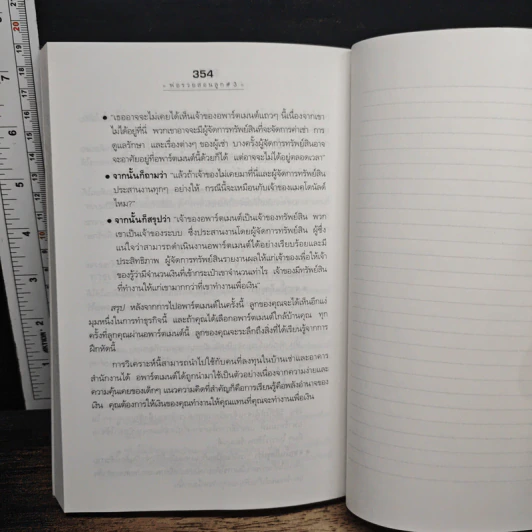 354
• พ่อรวยสอนลูก # 3 •
● "เธออาจจะไม่เคยได้เห็นเจ้าของอพาร์ตเมนต์แถวๆ นี้เนื่องจากเขา
ไม่ได้อยู่ที่นี่ พวกเขาอาจจะมีผู้จัดการทรัพย์สินที่จะจัดการค่าเช่า การ
ดูแลรักษา และเรื่องต่างๆ ของผู้เช่า บางครั้งผู้จัดการทรัพย์สินอาจ
จะอาศัยอยู่ที่อพาร์ตเมนต์นี้ด้วยก็ได้ แต่อาจจะไม่ได้อยู่ตลอดเวลา"
● จากนั้นก็ถามว่า "แล้วถ้าเจ้าของไม่เคยมาที่นี่และผู้จัดการทรัพย์สิน
ประสานงานทุกๆ อย่างให้ กรณีนี้จะเหมือนกับเจ้าของแมคโดนัลด์
ไหม?"
● จากนั้นก็สรุปว่า "เจ้าของอพาร์ตเมนต์เป็นเจ้าของทรัพย์สิน พวก
เขาเป็นเจ้าของระบบ ซึ่งประสานงานโดยผู้จัดการทรัพย์สิน ผู้ซึ่ง
แน่ใจว่าสามารถดำเนินงานอพาร์ตเมนต์ได้อย่างเรียบร้อยและมี
ประสิทธิภาพ ผู้จัดการทรัพย์สินรายงานผลให้แก่เจ้าของเพื่อให้เจ้า
ของรู้ว่ามีจำนวนเงินที่เข้ากระเป๋าเขาจำนวนเท่าไร เจ้าของมีทรัพย์สิน
ที่ทำงานให้แก่เขามากกว่าที่เขาทำงานเพื่อเงิน"
สรุป หลังจากการไปอพาร์ตเมนต์ในครั้งนี้ ลูกของคุณจะได้เห็นอีกแง่
มุมหนึ่งในการทำธุรกิจนี้ และถ้าคุณได้เลือกอพาร์ตเมนต์ใกล้บ้านคุณ ทุก
ครั้งที่ลูกคุณผ่านอพาร์ตเมนต์นี้ ลูกของคุณจะระลึกถึงสิ่งที่ได้เรียนรู้จากการ
ฝึกหัดนี้
การวิเคราะห์นี้สามารถนำไปใช้กับคนที่ลงทุนในบ้านเช่าและอาคาร
สำนักงานได้ อพาร์ตเมนต์ได้ถูกนำมาใช้เป็นตัวอย่างเนื่องจากความง่ายและ
ความคุ้นเคยของเด็กๆ แนวความคิดที่สำคัญก็คือการเรียนรู้คือพลังอำนาจของ
เงิน คุณต้องการให้เงินของคุณทำงานให้คุณแทนที่คุณจะทำงานเพื่อเงิน